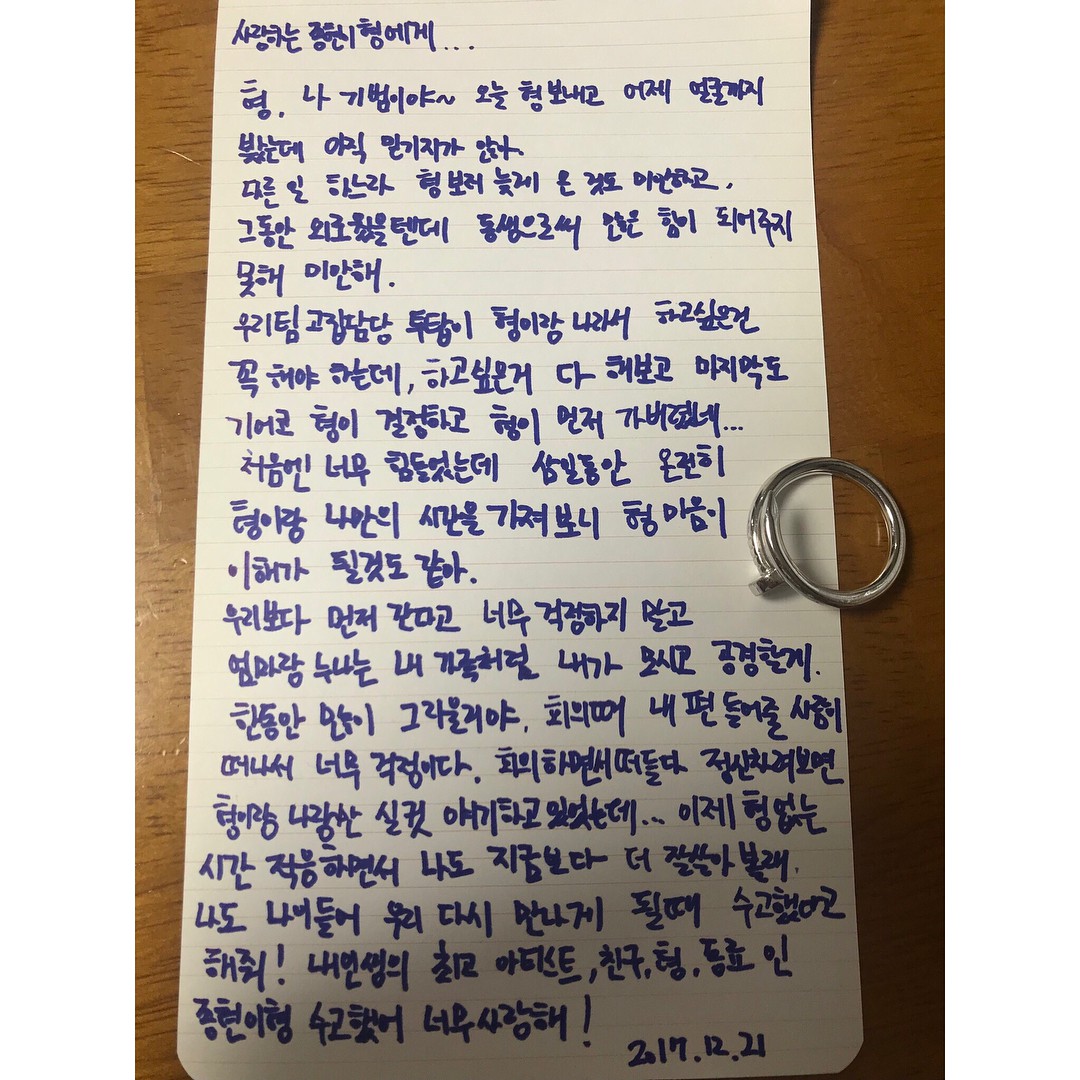 사랑하는 종현이형에게...
형, 나 기범이야~ 오늘 형보내고 어제 얼굴까지
봤는데 아직 믿기지가 않아.
다른 일 하느라 형보러 늦게 온 것도 미안하고,
그동안 외로웠을텐데 동생으로써 많은 힘이 되어주지
못해 미안해.
우리팀 고집담당 투탑이 형이랑 나라서 하고싶은건
꼭 해야 하는데, 하고싶은거 다 해보고 마지막도
기어코 형이 결정하고 형이 먼저 가버렸네...
처음엔 너무 힘들었는데 삼일동안 온전히
형이랑 나만의 시간을 가져보니 형 마음이
이해가 될것도 같아.
우리보다 먼저 간다고 너무 걱정하지 말고
엄마랑 누나는 내 가족처럼 내가 모시고 공경할게.
한동안 많이 그리울거야. 회의때 내 편 들어줄 사람이
떠나서 너무 걱정이다. 회의하면서떠들다 정신차려보면
형이랑 나랑만 실컷 얘기하고있었는데... 이제 형 없는
시간 적응하면서 나도 지금보다 더 잘살아 볼래.
나도 나이들어 우리 다시 만나게 될때 수고했다고
해줘! 내인생의 최고 아티스트, 친구, 형, 동료 인
종현이형 수고했어 너무사랑해!
2017.12.21